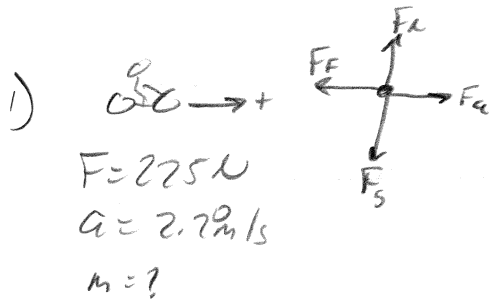 1)
+
F_N
F_F
F_a
F_g
F = 225 N
a = 2.20 m/s
m = ?